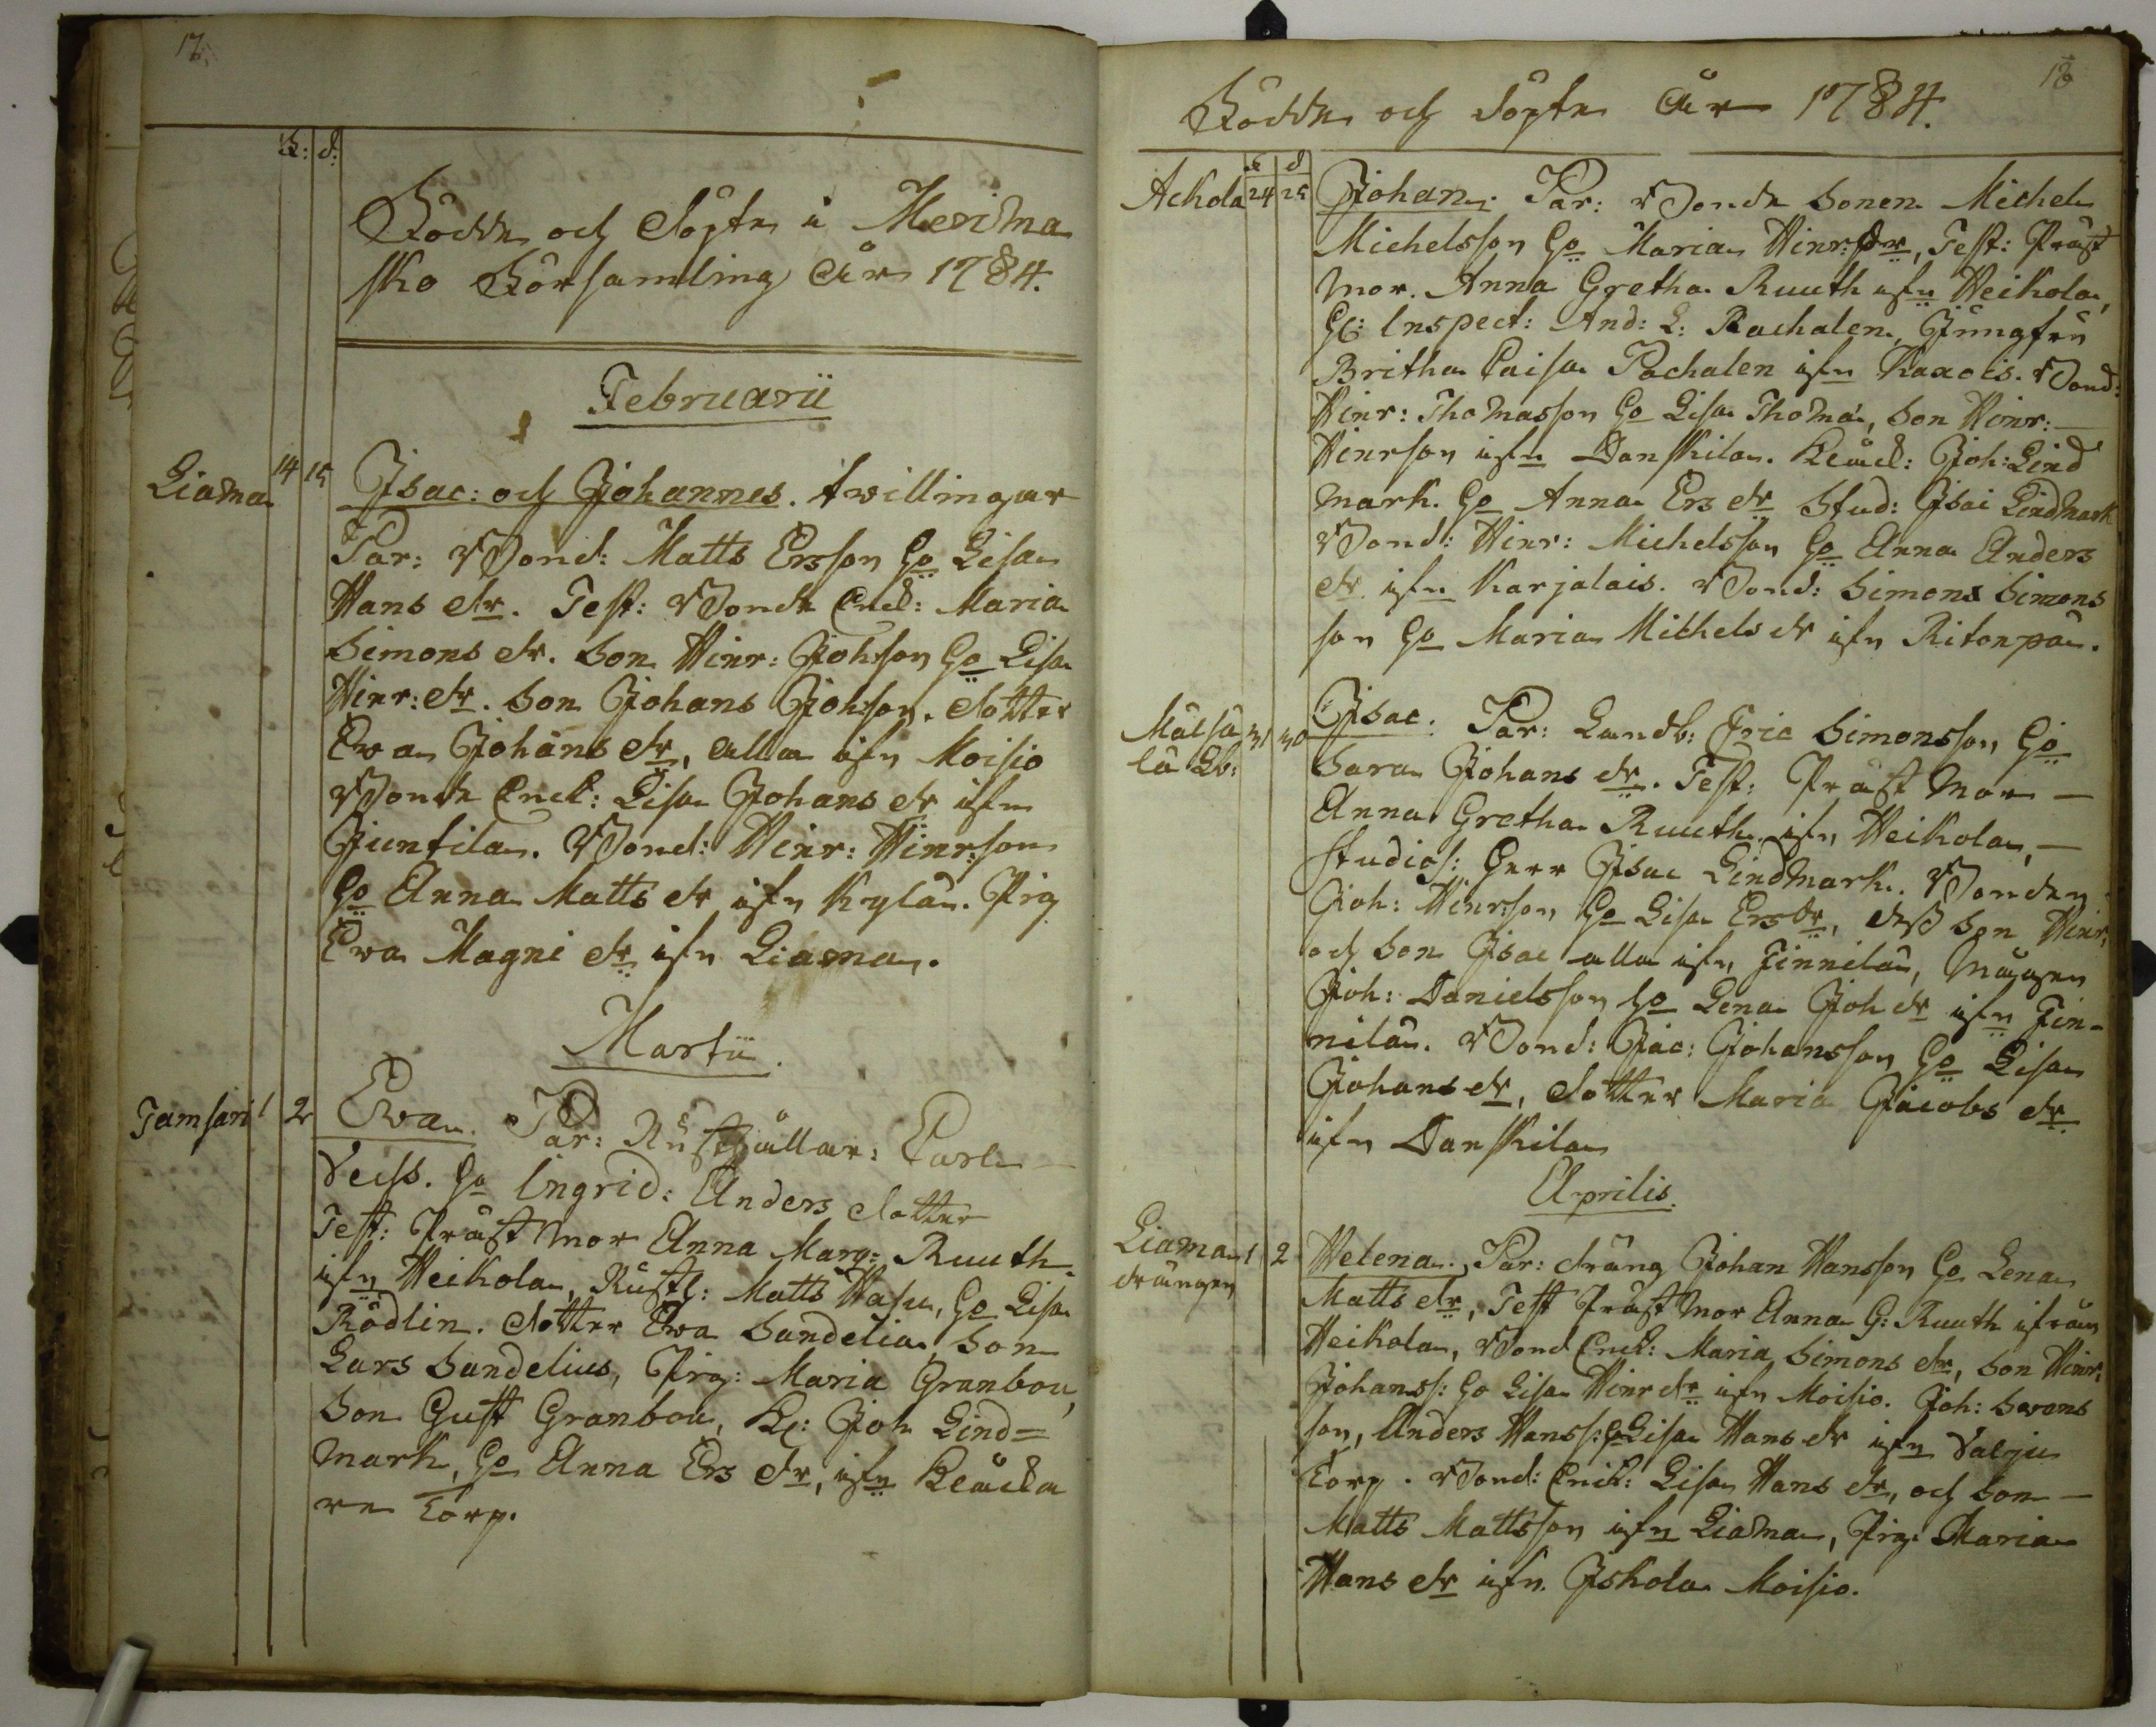 17.
F: d:
Födde och döpte i Merima
sko Församling År 1784.
Februarii
Liama 14 15 Isac: och Johannes. twillingar
Par: Bond: Matts Ersson Ho Lisa
Hans dr. Test: Bonde Enck: Maria
Simons dr. Son Hinr: Johsson Ho Lisa
Hinr: dr. Son Johans Johsson. dotter
Ewa Johans dr, alla ifrn Moisio
Bonde Enck: Lisa Johans dr ifrn
Juntila. Bond: Hinr: Hinr:son
Ho Anna Matts dr ifrn Kylä. Pig
Ewa Magni dr ifrn Liama.
Martii.
Tamsari 1 2 Ewa. Par: Rusthållar: Carl
Ho Ingrid: Anders dotter
Test: Prästmor Anna Marg: Ruuth
ifrn Heikola, Rusth: Matts Hasu, Ho Lisa
Rödlin. dotter Ewa Sandelia, Son
Lars Sandelius, Pig: Maria Granbou,
Son Gust Granbou, Kl: Joh Lind=
mark, Ho Anna Ers dr, ifrn Kläcka
re Torp.
18
Födde och döpte År 1784.
f d
Ackola 24 25 Johan. Par: Bonde Sonen Michel
Michelsson Ho Maria Hinr: dr, Test: Präst
mor. Anna Gretha Ruuth ifrn Heikola,
H: Inspect: And: L: Rachalen, Jungfru
Britha Caisa Pachalen ifrn Kaxois. Bond:
Hinr: Thomasson Ho Lisa Thoma, Son Hinr:
Hinrson ifrn Danskila. Kläck: Joh: Lind
mark. Ho Anna Ers dr Stud: Isac Lindmark
Bond: Hinr: Michelsson Ho Anna Anders
dr. ifrn Karjalais. Bond: Simons Simons
son Ho Maria Michels dr ifrn Ritonpä.
Mälsä
lä Lb: 30 Isac. Par: Landb: Eric Simonsson, Ho
Sara Johans dr. Test: Präst mor
Anna Gretha Ruuth ifrn Heikola,
Studios: Herr Isac Lindmark. Bonden
Joh: Hinrsson Ho Lisa Ers dr, dess Son Hinr,
och Son Isac alla ifrn Finnilä, Mågen
Joh: Danielsson Ho Lena Joh dr ifrn Fin-
nilä. Bond: Jac: Johansson Ho Lisa
Johans dr, dotter Maria Jacobs dr
ifrn Danskila
Aprilis.
Liama 1 2
drängen
Helena. Par: dräng Johan Hansson Ho Lena
Matts dr, Test Präst mor Anna G: Ruuth ifrån
Heikola, Bond Enck: Maria Simons dr, Son Hinr:
Johanss: Ho Lisa Hinr dr ifrn Moisio. Joh: Swens
son, Anders Hanss: Ho Lisa Hans dr ifrn Valju
Torp. Bond: Enck: Lisa Hans dr, och Son
Matts Mattsson ifrn Liama, Pig: Maria
Hans dr ifrn Iskola Moisio.